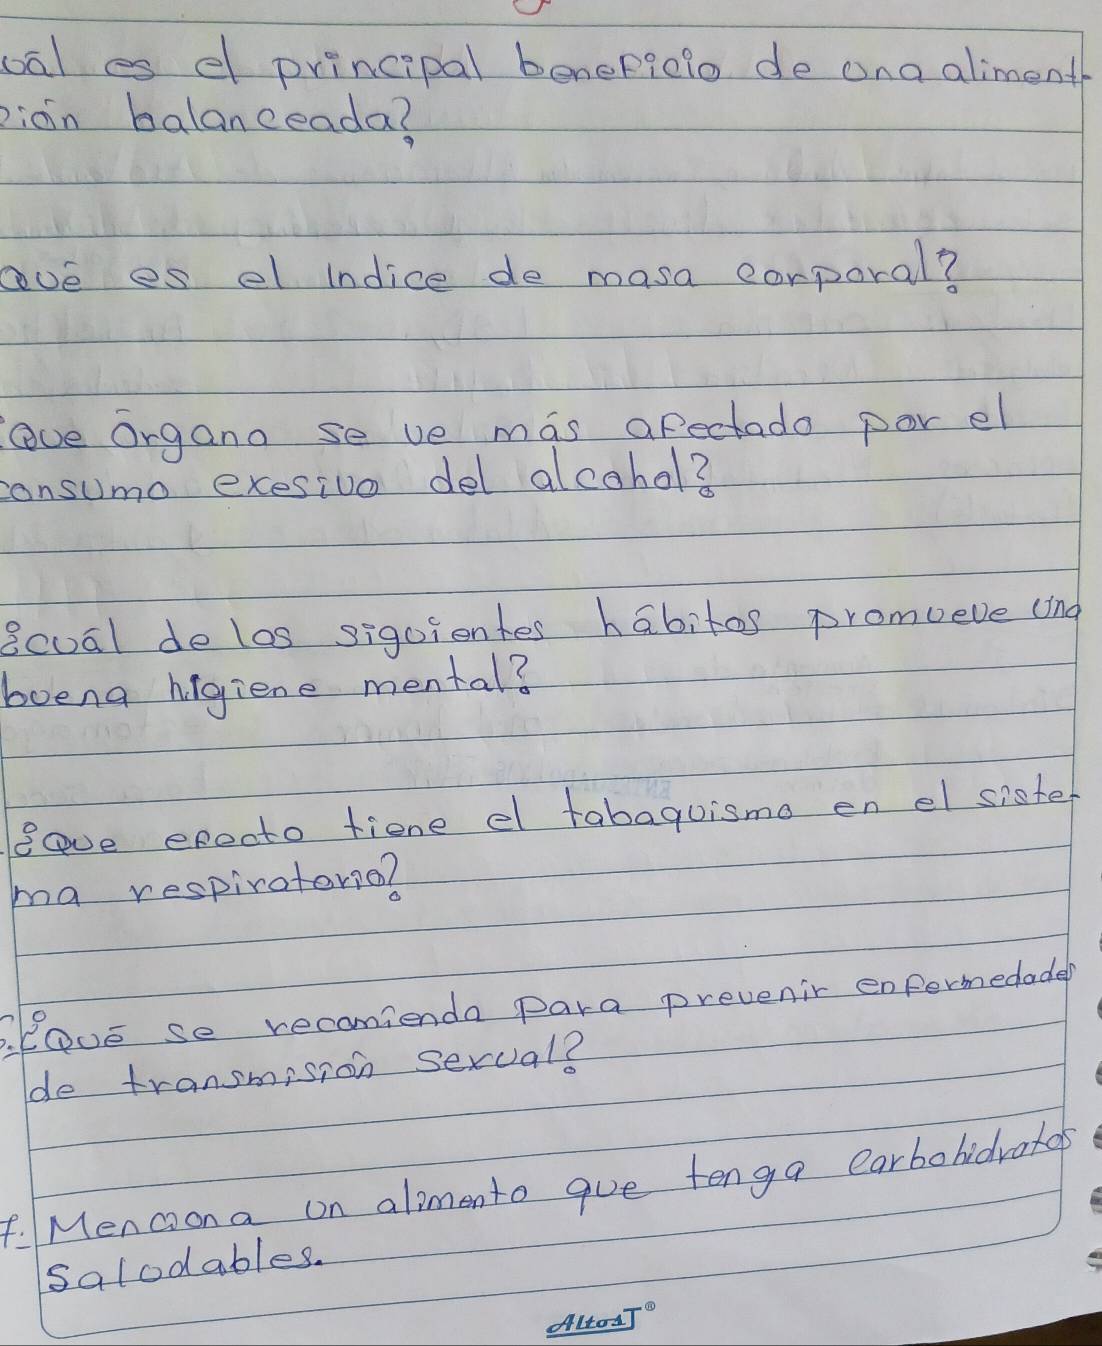 cuál es el principal beneficio de una aliment
ción balanceada?
Qué es el Indice de masa corporal?
¿Que órgano se ve más afectado por el
consumo exesivo del alcohol?
¿cuál de los siguientes hábitos promueve una
buena higiene mental?
¿Que efecto tiene el tabaquismo en el siste-
ma respiratorio?
¿Qué se recomienda para prevenir enfermedades
de transmisión sexual?
7. Menciona un alimento que tenga carbohidratos
saludables.
AltosT®